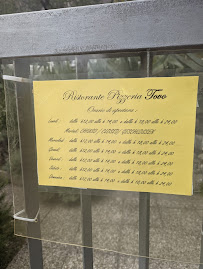 Ristorante Pizzeria Tovo
Orario di apertura :
Lunedì dalle h 12,00 alle h 14,00 e dalle h 18,00 alle h 24,00
Martedì CHIUSO / CLOSED / GESCHLOSSEN
Mercoledì dalle h 12,00 alle h 14,00 e dalle h 18,00 alle h 24,00
Giovedì dalle h 12,00 alle h 14,00 e dalle h 18,00 alle h 24,00
Venerdì dalle h 12,00 alle h 14,00 e dalle h 18,00 alle h 24,00
Sabato dalle h 12,00 alle h 14,00 e dalle h 18,00 alle h 24,00
Domenica dalle h 12,00 alle h 14,00 e dalle h 18,00 alle h 24,00